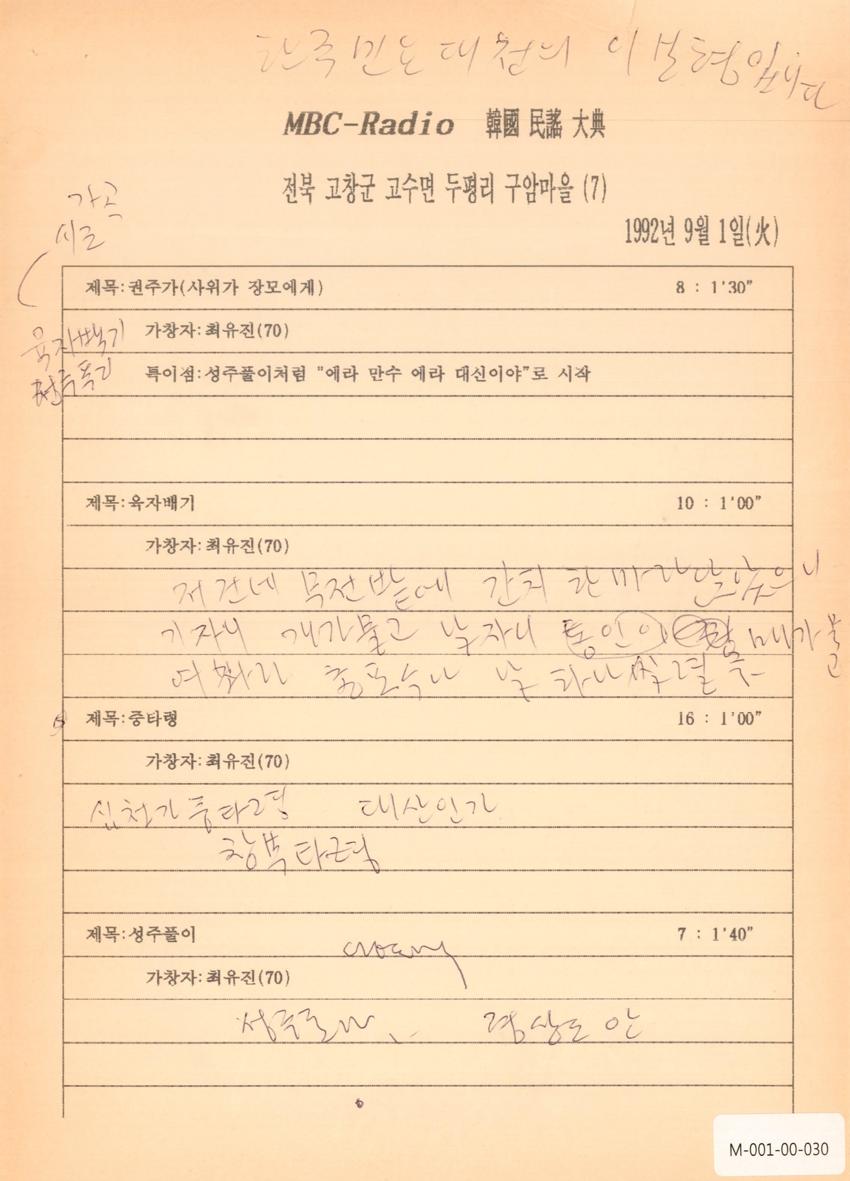 한국민요대전의 이보형입니다
MBC-Radio 韓國 民謠 大典
전북 고창군 고수면 두평리 구암마을 (7)
1992년 9월 1일(火)
가곡
시조
제목:권주가(사위가 장모에게) 8 : 1'30"
육자배기 가창자:최유진(70)
특이점:성주풀이처럼 "에라 만수 에라 대신이야"로 시작
제목:육자배기 10 : 1'00"
가창자:최유진(70)
저 건네 묵전밭에 간치 한 마리 앉았으니
기자니 개가 물고 날자니 매가 물고
여봐라 총포수나
제목:중타령 16 : 1'00"
가창자:최유진(70)
중타령 대산인가
창부타령
제목:성주풀이 7 : 1'40"
가창자:최유진(70)
성주로다 경상도 안
M-001-00-030